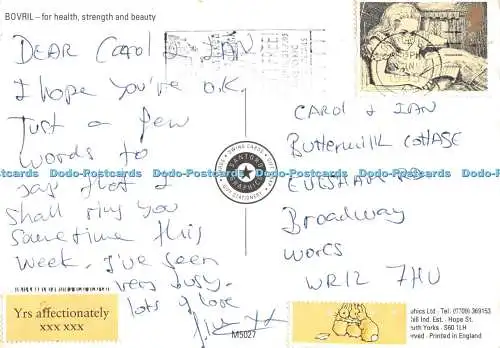 BOVRIL – for health, strength and beauty
DEAR Carol & IAN
I hope you're o.k.
Just a few
words to
say that I
shall ring you
sometime this
week. I've been
very busy.
lots of love
Yrs affectionately
xxx xxx
CAROL & IAN
Buttermilk COttAGE
EVESHAM RD
Broadway
WORCS
WR12 7HU
SANTORO
GRAPHICS
SWING CARDS
STATIONERY
M5027
aphics Ltd - Tel: (0709) 369153
hill Ind. Est. - Hope St.
outh Yorks - S60 1LH
erved - Printed in England
Dodo-Postcards Dodo-Postcards Dodo-Postcards Dodo-Postcards Dodo-Postcards